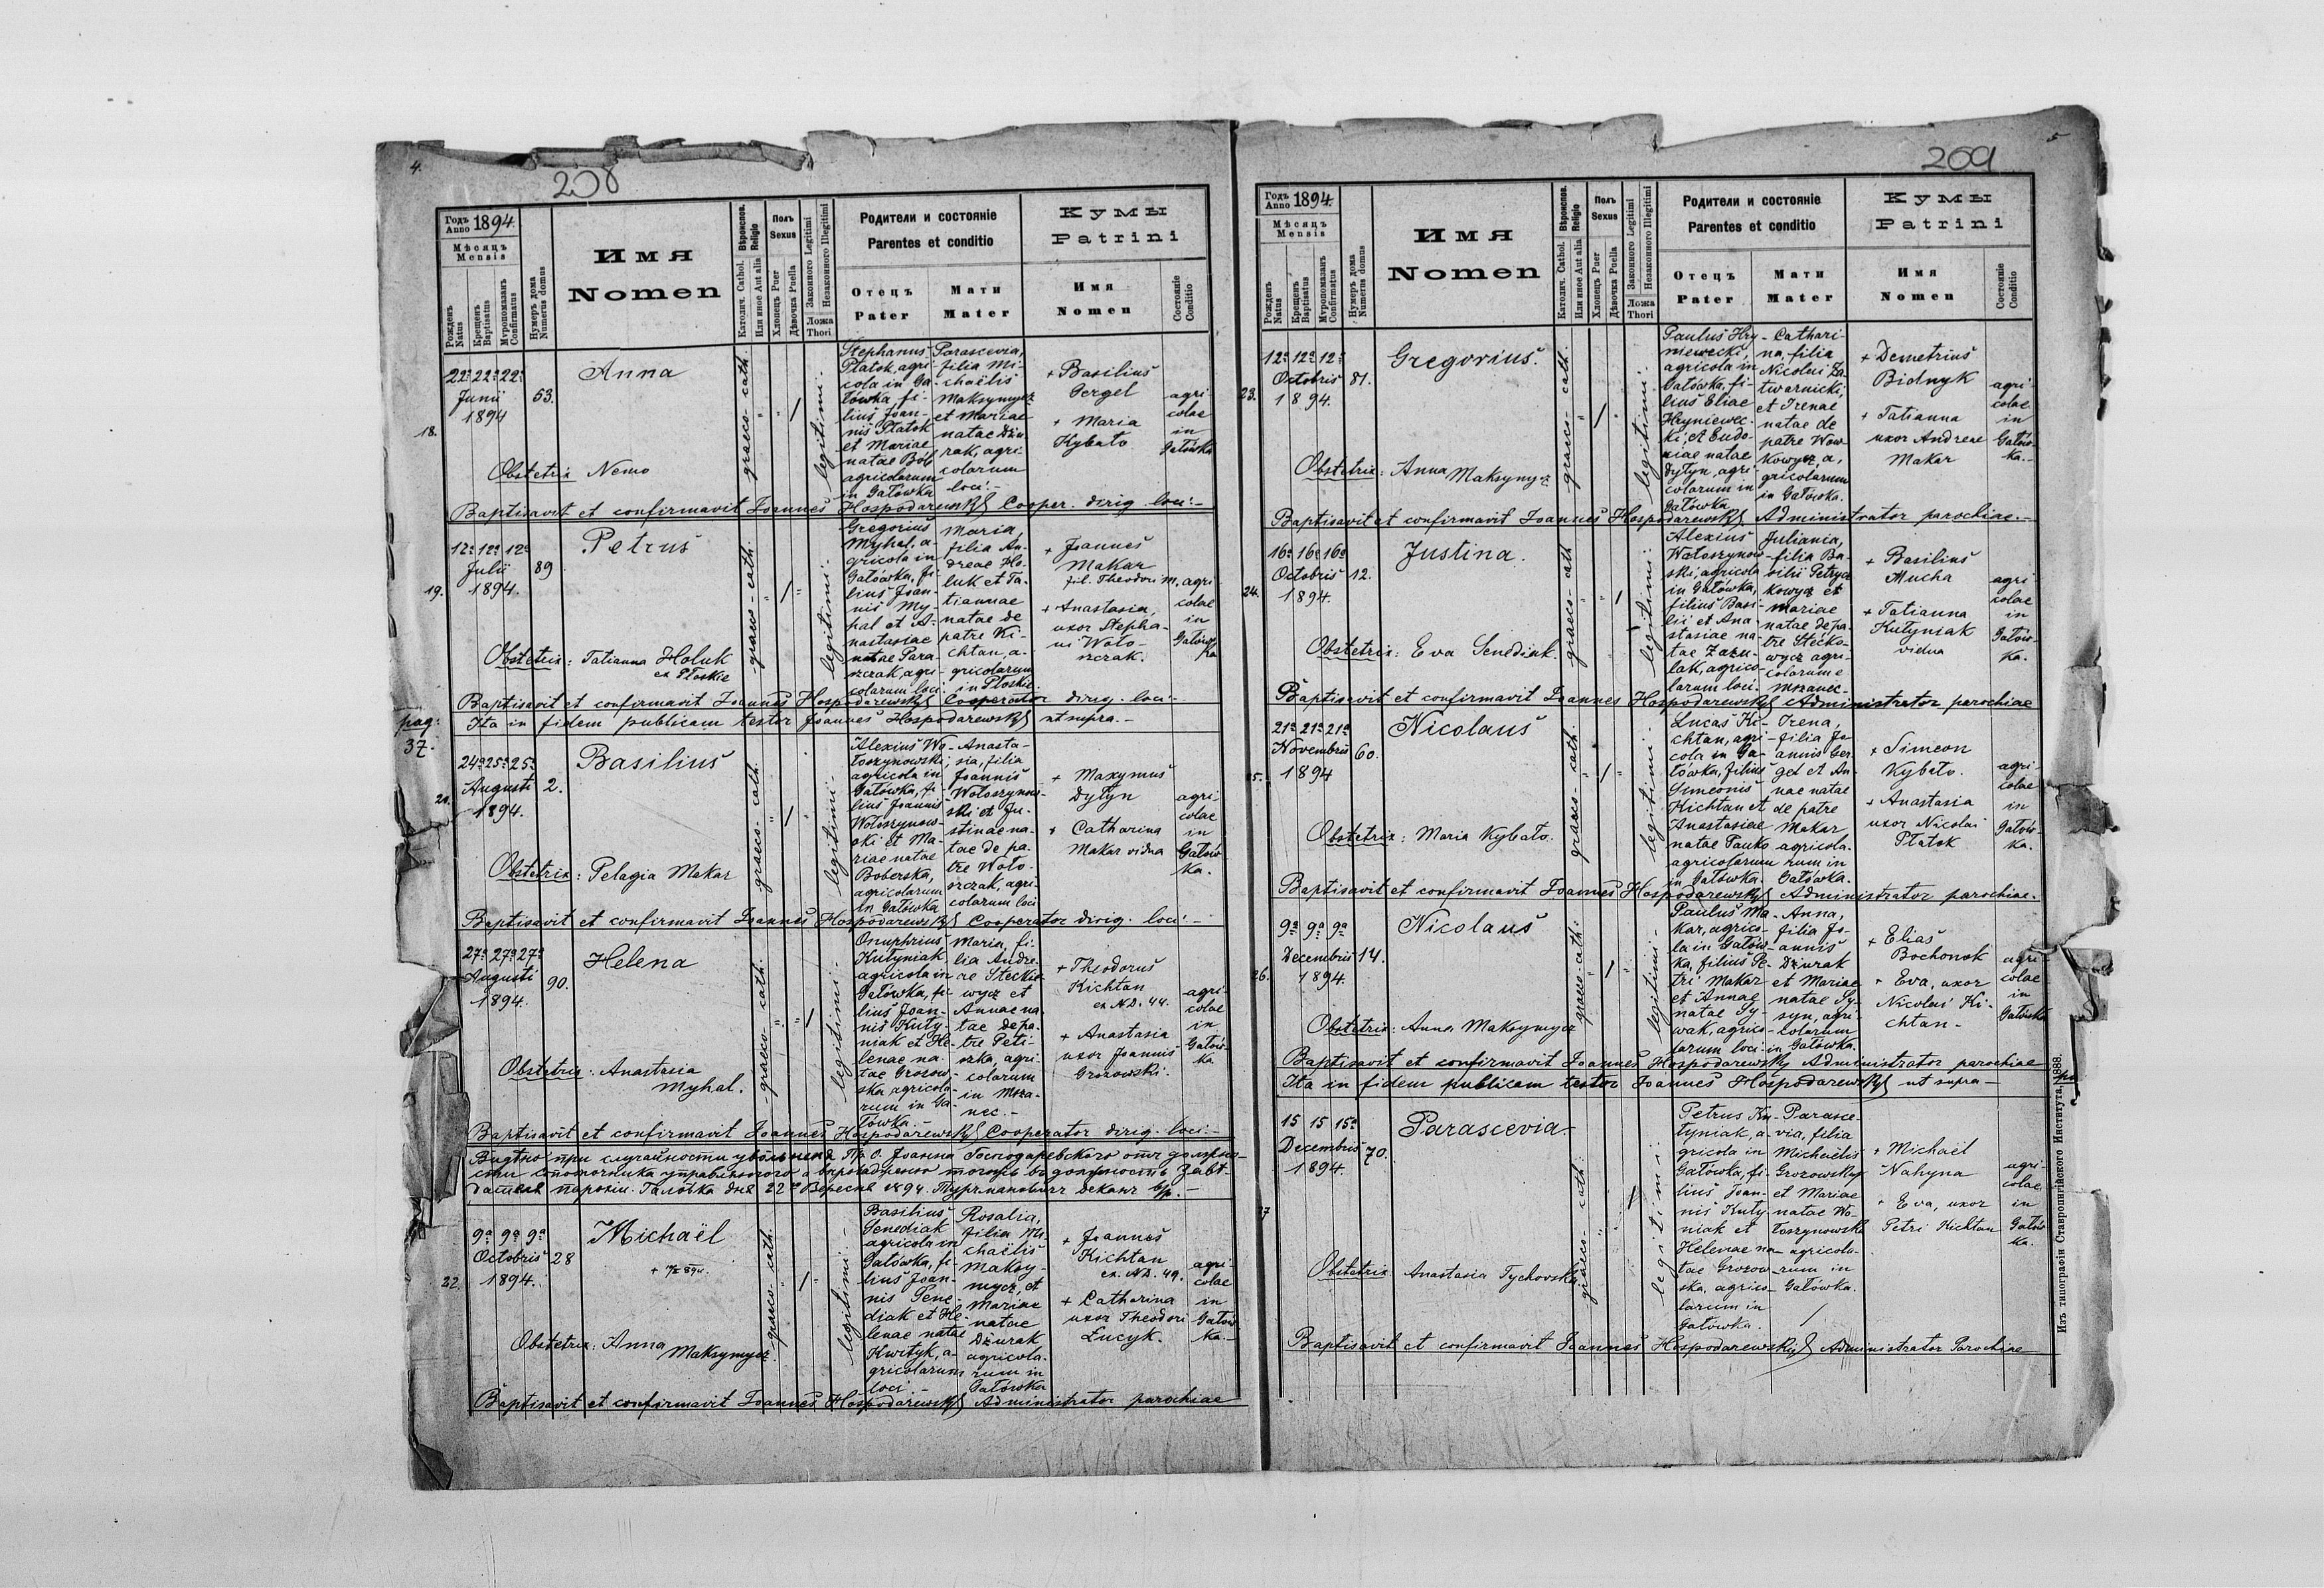 4.
208
Годъ Anno 1894.
Мѣсяцъ
Mensis
Рожденъ Natus
Крещенъ Baptisatus
Мѵропомазанъ Confirmatus
Нумеръ дома Numerus domus
Имя
Nomen
Вѣроиспов. Religio
Католич. Cathol.
Или иное Aut alia
Полъ
Sexus
Хлопецъ Puer
Дѣвочка Puella
Законного Legitimi
Незаконного Illegitimi
Ложа
Thori
Родители и состояніе
Parentes et conditio
Отецъ
Pater
Мати
Mater
Кумы
Patrini
Имя
Nomen
Состояніе
Conditio
18.
22ª 22ª 22ª
Junii
1894
53.
Anna
graeco-cath.
legitimi
Stephanus
Ptatok, agri-
cola in Ga-
łówka, fi-
lius Joan-
nis Ptatok
et Mariae
natae Bób
agricolarum
in Gałówka
Parascevia,
filia Mi-
chaëlis
Maksymycz
et Mariae
natae Dżu
rak, agri-
colarum
loci.-
+ Basilius
Gergel
+ Maria
Kybato
agri
colae
in
Gałówka
Obstetrix Nemo
Baptisavit et confirmavit Joannes Hospodarewsky Cooper. dirig. loci.-
19.
12ª 12ª 12ª
Julii
1894.
89
Petrus
graeco-cath.
legitimi
Gregorius
Myhal, a-
gricola in
Gałówka, fi-
lius Joan-
nis My-
hal et A-
nastasiae
natae Para-
szczak, agri-
colarum loci
Maria,
filia An-
dreae Ho-
luk et Ta-
tiannae
natae de
patre Ki-
chtan, a-
gricolarum
in Płoskie.
+ Joannes
Makar
fil. Theodori M.
+ Anastasia,
uxor Stepha-
ni Woło-
szczak.
agri-
colae
in
Gałów
ka
Obstetrix: Tatianna Holuk
ex Płoskie
Baptisavit et confirmavit Joannes Hospodarewsky Cooperator dirig. loci.-
pag:
37.
Ita in fidem publicam testor Joannes Hospodarewsky ut supra.-
24ª 25ª 25ª
Augusti
1894.
2.
Basilius
graeco-cath.
legitimi
Alexius Wo-
łoszynowski,
agricola in
Gałówka, fi-
lius Joannis
Wołoszynow-
ski et Ma-
riae natae
Boberska,
agricolarum
in Gałówka
Anasta-
sia, filia
Joannis
Wołoszynow-
ski et Ju-
stinae na-
tae de pa-
tre Woło-
szczak, agri-
colarum loci
+ Maxymus
Dytyn
+ Catharina
Makar vidua
agri-
colae
in
Gałów
ka.
Obstetrix: Pelagia Makar
Baptisavit et confirmavit Joannes Hospodarewsky Cooperator dirig. loci.-
27ª 27ª 27ª
Augusti
1894.
90.
Helena
graeco-cath.
legitimi
Onuphrius
Kutyniak
agricola in
Gałówka, fi-
lius Joan-
nis Kuty-
niak et He-
lenae na-
tae Grozow-
ska agricola-
rum in Ga-
łówka.-
Maria, fi-
lia Andre-
ae Steczko-
wycz et
Annae na-
tae de pa-
tre Peti-
szka, agri-
colarum
in Msza-
nec.-
+ Theodorus
Kichtan
ex N.D. 44.
+ Anastasia
uxor Joannis
Grozowski.
agri-
colae
in
Gałów-
ka
Obstetrix: Anastasia
Myhal.
Baptisavit et confirmavit Joannes Hospodarewsky Cooperator dirig. loci.-
22.
9ª 9ª 9ª
Octobris
1894.
28
Michaël
graeco-cath.
legitimi
Basilius
Senediak
agricola in
Gałówka, fi-
lius Joan-
nis Sene-
diak et He-
lenae natae
Kwityk, a-
gricolarum
loci.-
Rosalia,
filia Mi-
chaëlis
Maksy-
mycz, et
Mariae
natae
Dżurak
agricola-
rum in
Gałówka
+ Joannes
Kichtan
ex N.D. 49.
+ Catharina
uxor Theodori
Lucyk.
agri-
colae
in
Gałów
ka.-
Obstetrix: Anna
Maksymycz
Baptisavit et confirmavit Joannes Hospodarewsky Administrator parochiae
5
209
Годъ Anno 1894.
Мѣсяцъ
Mensis
Рожденъ Natus
Крещенъ Baptisatus
Мѵропомазанъ Confirmatus
Нумеръ дома Numerus domus
Имя
Nomen
Вѣроиспов. Religio
Католич. Cathol.
Или иное Aut alia
Полъ
Sexus
Хлопецъ Puer
Дѣвочка Puella
Законного Legitimi
Незаконного Illegitimi
Ложа
Thori
Родители и состояніе
Parentes et conditio
Отецъ
Pater
Мати
Mater
Кумы
Patrini
Имя
Nomen
Состояніе
Conditio
23.
12ª 12ª 12ª
Octobris
1894.
81.
Gregorius.
graeco-cath.
legitimi
Paulus Hry-
niewecki,
agricola in
Gałówka, fi-
lius Eliae
Hryniewec-
ki, et Eudo-
xiae natae
Dytyn, agri-
colarum in
Gałówka
Cathari-
na, filia
Nicolai Za-
twarnicki,
et Irenae
natae de
patre Wow-
kowycz, a-
gricolarum
in Gałówka.
+ Demetrius
Bidnyk
+ Tatianna
uxor Andreae
Makar
agri
colae
in
Gałów-
ka.-
Obstetrix: Anna Maksymycz
Baptisavit et confirmavit Joannes Hospodarewsky Administrator parochiae.-
24.
16ª 16ª 16ª
Octobris
1894.
12.
Justina.
graeco-cath
legitimi
Alexius
Wołoszynow-
ski, agricola
in Gałówka,
filius Basi-
lii et Ana-
stasiae na-
tae Zazu-
lak, agrico-
larum loci
Juliania,
filia Ba-
silii Petryc
kowycz et
Mariae
natae de pa-
tre Steczko-
wycz agri-
colarum e
Mszanec-
+ Basilius
Mucha
+ Tatianna
Kutyniak
vidua
agri
colae
in
Gałów
ka.
Obstetrix: Eva Senediak.
Baptisavit et confirmavit Joannes Hospodarewsky Administrator parochiae
25.
21ª 21ª 21ª
Novembris
1894
60.
Nicolaus
graeco-cath.
legitimi
Lucas Ki-
chtan, agri-
cola in Ga-
łówka, filius
Simeonis
Kichtan et
Anastasiae
natae Pauko
agricolarum
in Gałówka.
Irena,
filia Jo-
annis Ger
gel et An-
nae natae
de patre
Makar
agricola-
rum in
Gałówka.
+ Simeon
Kybato.
+ Anastasia
uxor Nicolai
Ptatok
agri-
colae
in
Gałów
ka.
Obstetrix: Maria Kybato.
Baptisavit et confirmavit Joannes Hospodarewsky Administrator parochiae.
26.
9ª 9ª 9ª
Decembris
1894.
14.
Nicolaus
graeco-cath.
legitimi
Paulus Ma-
kar, agrico-
la in Gałów
ka, filius Pe-
tri Makar
et Annae
natae Sy-
wak, agrico-
larum loci
Anna,
filia Jo-
annis
Dżurak
et Mariae
natae Sy-
syn, agri-
colarum
in Gałówka.
+ Elias
Bochonok
+ Eva, uxor
Nicolai Ki-
chtan-
agri-
colae
in
Gałówka
Obstetrix: Anna Maksymycz
Baptisavit et confirmavit Joannes Hospodarewsky Administrator parochiae
Ita in fidem publicam testor Joannes Hospodarewsky ut supra-
27
15 15 15ª
Decembris
1894.
70.
Parascevia.
graeco-cath.
legitimi
Petrus Ku-
tyniak, a-
gricola in
Gałówka, fi-
lius Joan-
nis Kuty-
niak et
Helenae na-
tae Grozow-
ska, agrico-
larum in
Gałówka.
Parasce-
via, filia
Michaelis
Grozowsky
et Mariae
natae Wo-
łoszynowska
agricola-
rum in
Gałówka.
+ Michaël
Nahyna
+ Eva, uxor
Petri Kichtan
agri-
colae
in
Gałów
ka.
Obstetrix Anastasia Tychovska
Baptisavit et confirmavit Joannes Hospodarewsky Administrator Parochiae
Изъ типографіи Ставропигійского Института, 1888.